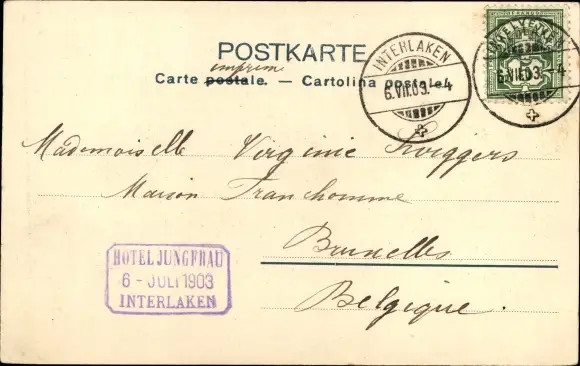 POSTKARTE
imprimé
Carte postale. — Cartolina postale.
INTERLAKEN
6.VII.03. - 4
HELVETIA
6.VII.03. - 4
Mademoiselle Virginie Swiggers
Maison Franchomme
Bruxelles
Belgique.
HOTEL JUNGFRAU
6 - JULI 1903
INTERLAKEN